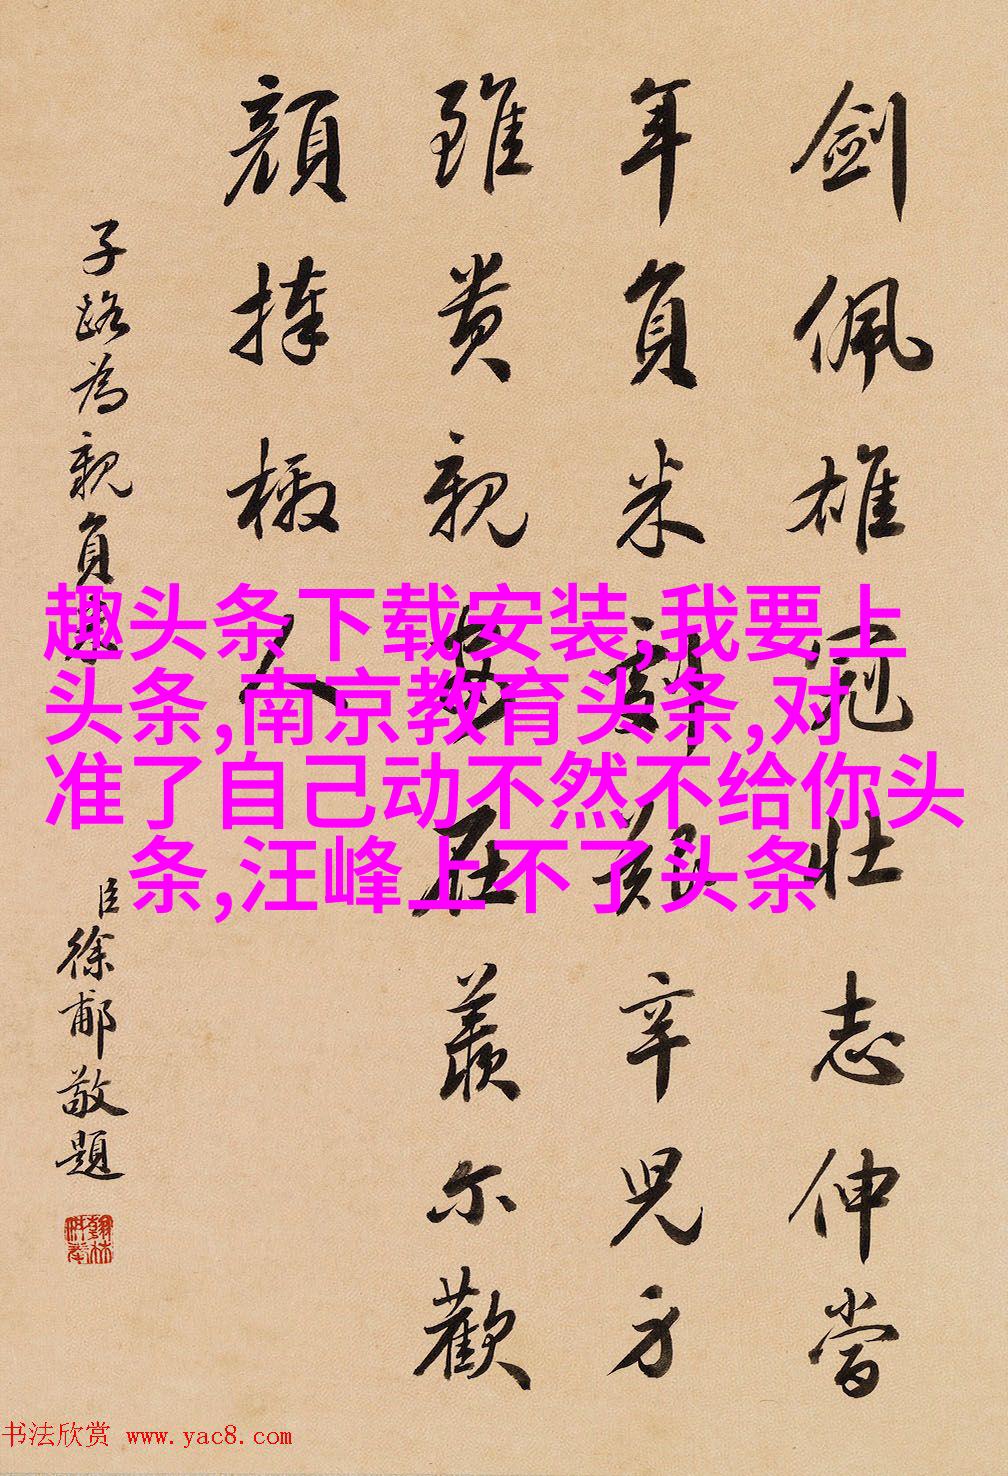 劍佩雄冠壯志伸當
年負米艱辛兒方
雖貴親在羨爾歡
顏捧檄人
子路為親負米
臣徐郙敬題
趣头条下载安装,我要上
头条,南京教育头条,对
准了自己动不然不给你头
条,汪峰上不了头条
书法欣赏 www.yac8.com